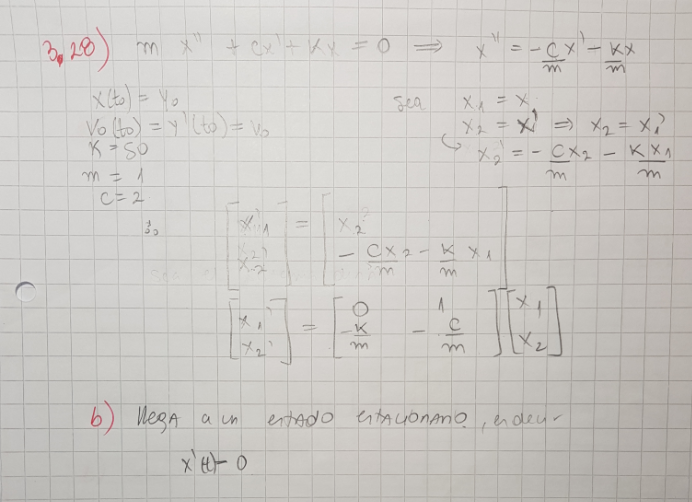 3.28) m x'' + cx' + Kx = 0 ⟹ x'' = -c/m x' - Kx/m
x(to) = yo
Vo(to) = y'(to) = Vo
K = 50
m = 1
c = 2
Sea x1 = x
x2 = x' ⟹ x2 = x1'
x2' = - c x2/m - K x1/m
[x1' x2'] = [x2 - cx2/m - K/m x1]
[x1' x2'] = [0 1 -K/m - c/m] [x1 x2]
b) llega a un estado estacionario, es decir
x'(t) = 0